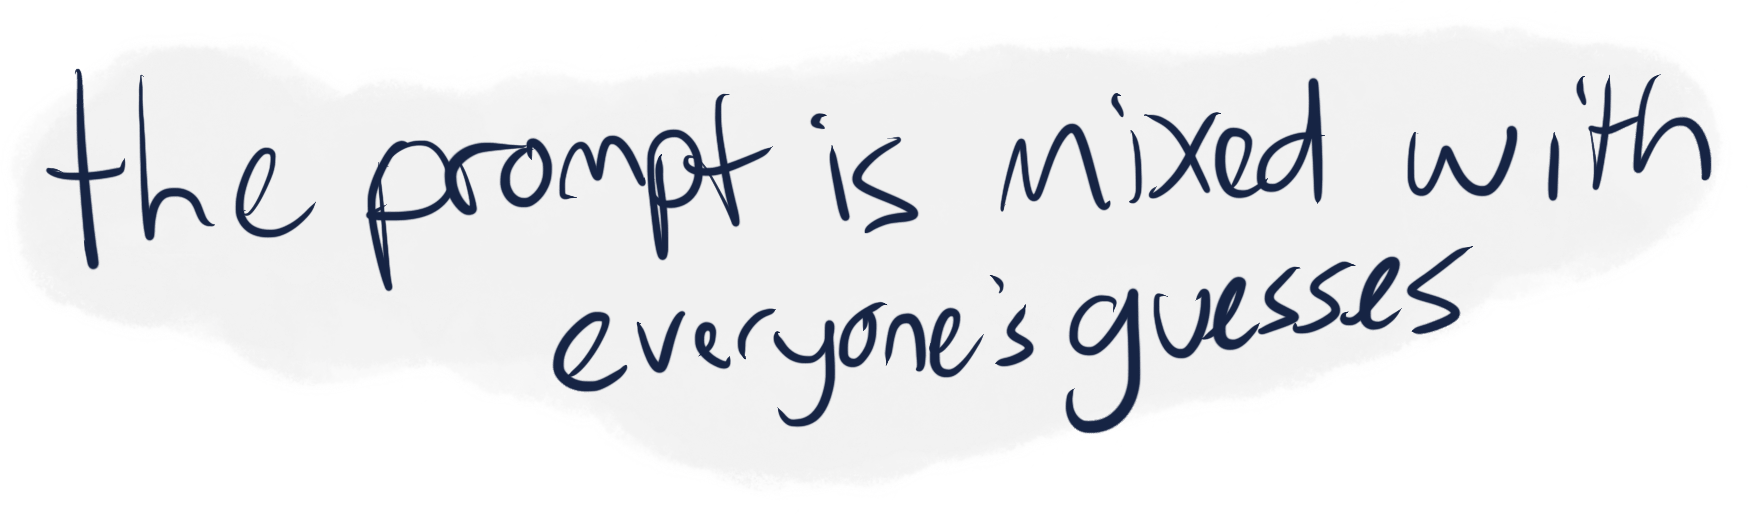 the prompt is mixed with
everyone's guesses